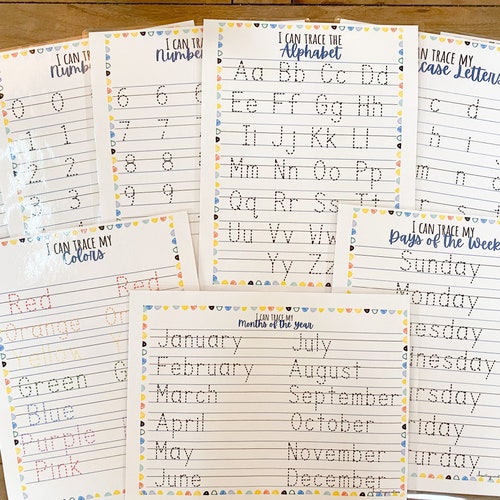 I CAN TRACE MY
Number
0 0
1 1
2 2
3 3
I CAN TRACE MY
Number
6 6
7 7
8 8
9 9
I CAN TRACE THE
Alphabet
Aa Bb Cc Dd
Ee Ff Gg Hh
Ii Jj Kk Ll
Mm Nn Oo Pp
Qq Rr Ss Tt
Uu Vv Ww
Yy Zz
CAN TRACE MY
case Letters
c d
I CAN TRACE MY
Colors
Red Red
Orange
Yellow
Green
Blue
Purple
Pink
I CAN TRACE MY
Days of the Week
Sunday
Monday
sday
nesday
rsday
day
urday
I CAN TRACE MY
Months of the Year
January July
February August
March September
April October
May November
June December